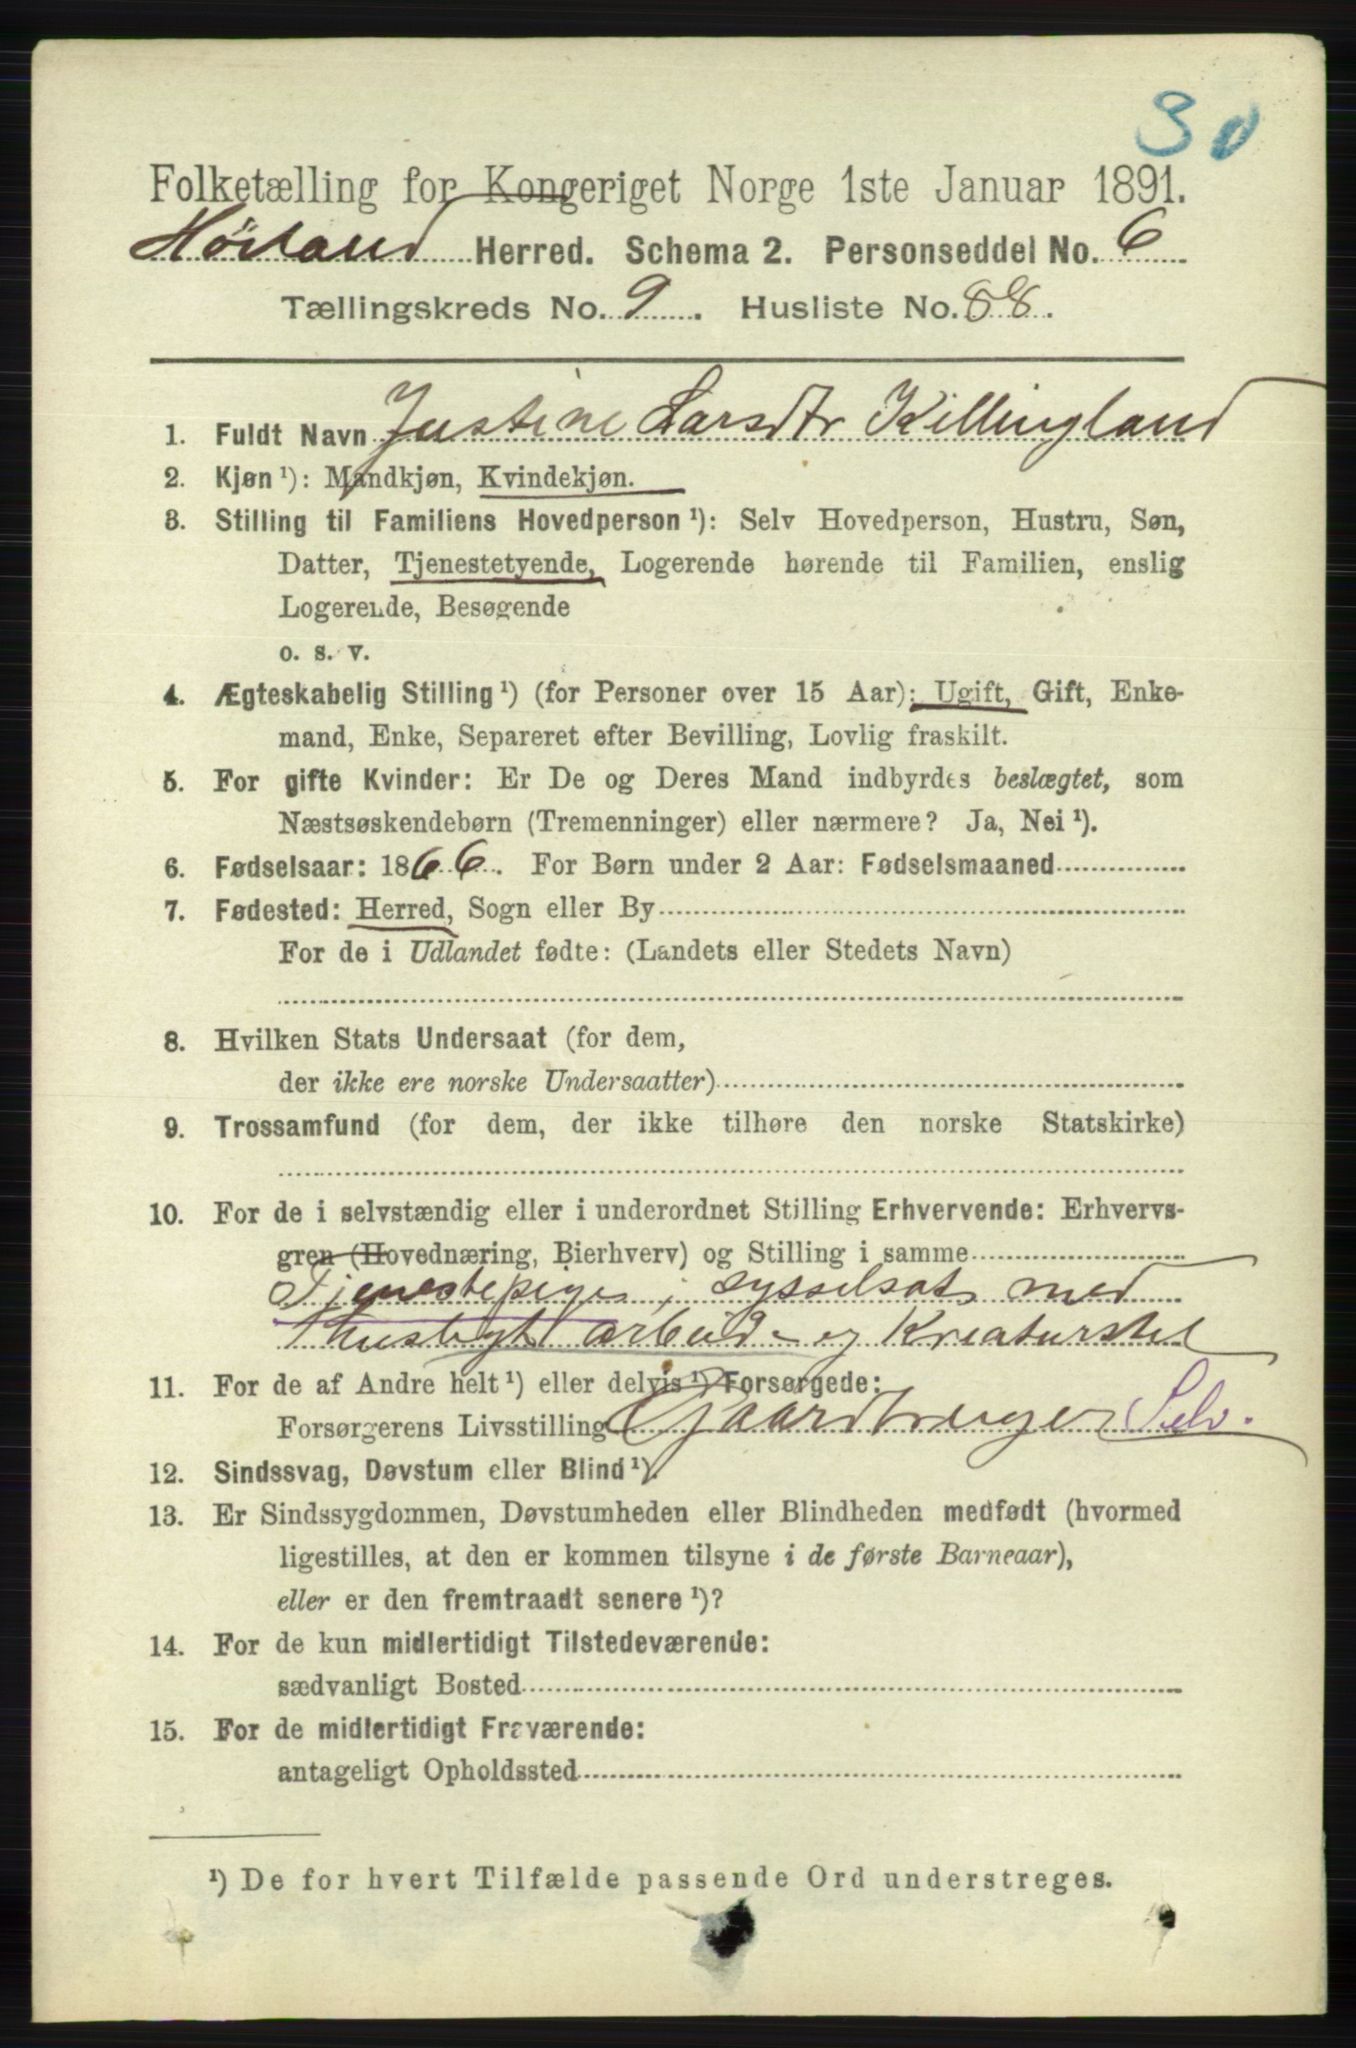 30
Folketælling for Kongeriget Norge 1ste Januar 1891.
Høiland Herred. Schema 2. Personseddel No. 6
Tællingskreds No. 9. Husliste No. 88.
1. Fuldt Navn Justine Larsdtr Killingland
2. Kjøn ¹): Mandkjøn, Kvindekjøn.
3. Stilling til Familiens Hovedperson ¹): Selv Hovedperson, Hustru, Søn,
Datter, Tjenestetyende, Logerende hørende til Familien, enslig
Logerende, Besøgende
o. s. v.
4. Ægteskabelig Stilling ¹) (for Personer over 15 Aar): Ugift, Gift, Enke-
mand, Enke, Separeret efter Bevilling, Lovlig fraskilt.
5. For gifte Kvinder: Er De og Deres Mand indbyrdes beslægtet, som
Næstsøskendebørn (Tremenninger) eller nærmere? Ja, Nei ¹).
6. Fødselsaar: 1866. For Børn under 2 Aar: Fødselsmaaned
7. Fødested: Herred, Sogn eller By
For de i Udlandet fødte: (Landets eller Stedets Navn)
8. Hvilken Stats Undersaat (for dem,
der ikke ere norske Undersaatter)
9. Trossamfund (for dem, der ikke tilhøre den norske Statskirke)
10. For de i selvstændig eller i underordnet Stilling Erhvervende: Erhvervs-
gren (Hovednæring, Bierhverv) og Stilling i samme
Tjenestepige, sysselsat med
huusligt arbeide og Kreaturstel
11. For de af Andre helt ¹) eller delvis ¹) Forsørgede:
Forsørgerens Livsstilling Gaardbruger Selv.
12. Sindssvag, Døvstum eller Blind ¹).
13. Er Sindssygdommen, Døvstumheden eller Blindheden medfødt (hvormed
ligestilles, at den er kommen tilsyne i de første Barneaar),
eller er den fremtraadt senere ¹)?
14. For de kun midlertidigt Tilstedeværende:
sædvanligt Bosted
15. For de midlertidigt Fraværende:
antageligt Opholdssted
¹) De for hvert Tilfælde passende Ord understreges.